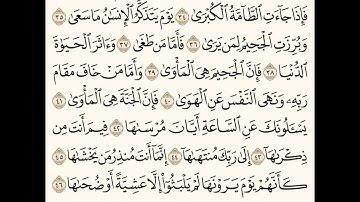 فَإِذَا جَآءَتِ ٱلطَّآمَّةُ ٱلْكُبْرَىٰ ٣٤ يَوْمَ يَتَذَكَّرُ ٱلْإِنسَٰنُ مَا سَعَىٰ ٣٥
وَبُرِّزَتِ ٱلْجَحِيمُ لِمَن يَرَىٰ ٣٦ فَأَمَّا مَن طَغَىٰ ٣٧ وَءَاثَرَ ٱلْحَيَوٰةَ
ٱلدُّنْيَا ٣٨ فَإِنَّ ٱلْجَحِيمَ هِىَ ٱلْمَأْوَىٰ ٣٩ وَأَمَّا مَنْ خَافَ مَقَامَ
رَبِّهِۦ وَنَهَى ٱلنَّفْسَ عَنِ ٱلْهَوَىٰ ٤٠ فَإِنَّ ٱلْجَنَّةَ هِىَ ٱلْمَأْوَىٰ ٤١
يَسْـَٔلُونَكَ عَنِ ٱلسَّاعَةِ أَيَّانَ مُرْسَىٰهَا ٤٢ فِيمَ أَنتَ مِن
ذِكْرَىٰهَآ ٤٣ إِلَىٰ رَبِّكَ مُنتَهَىٰهَآ ٤٤ إِنَّمَآ أَنتَ مُنذِرُ مَن يَخْشَىٰهَا ٤٥
كَأَنَّهُمْ يَوْمَ يَرَوْنَهَا لَمْ يَلْبَثُوٓا۟ إِلَّا عَشِيَّةً أَوْ ضُحَىٰهَا ٤٦